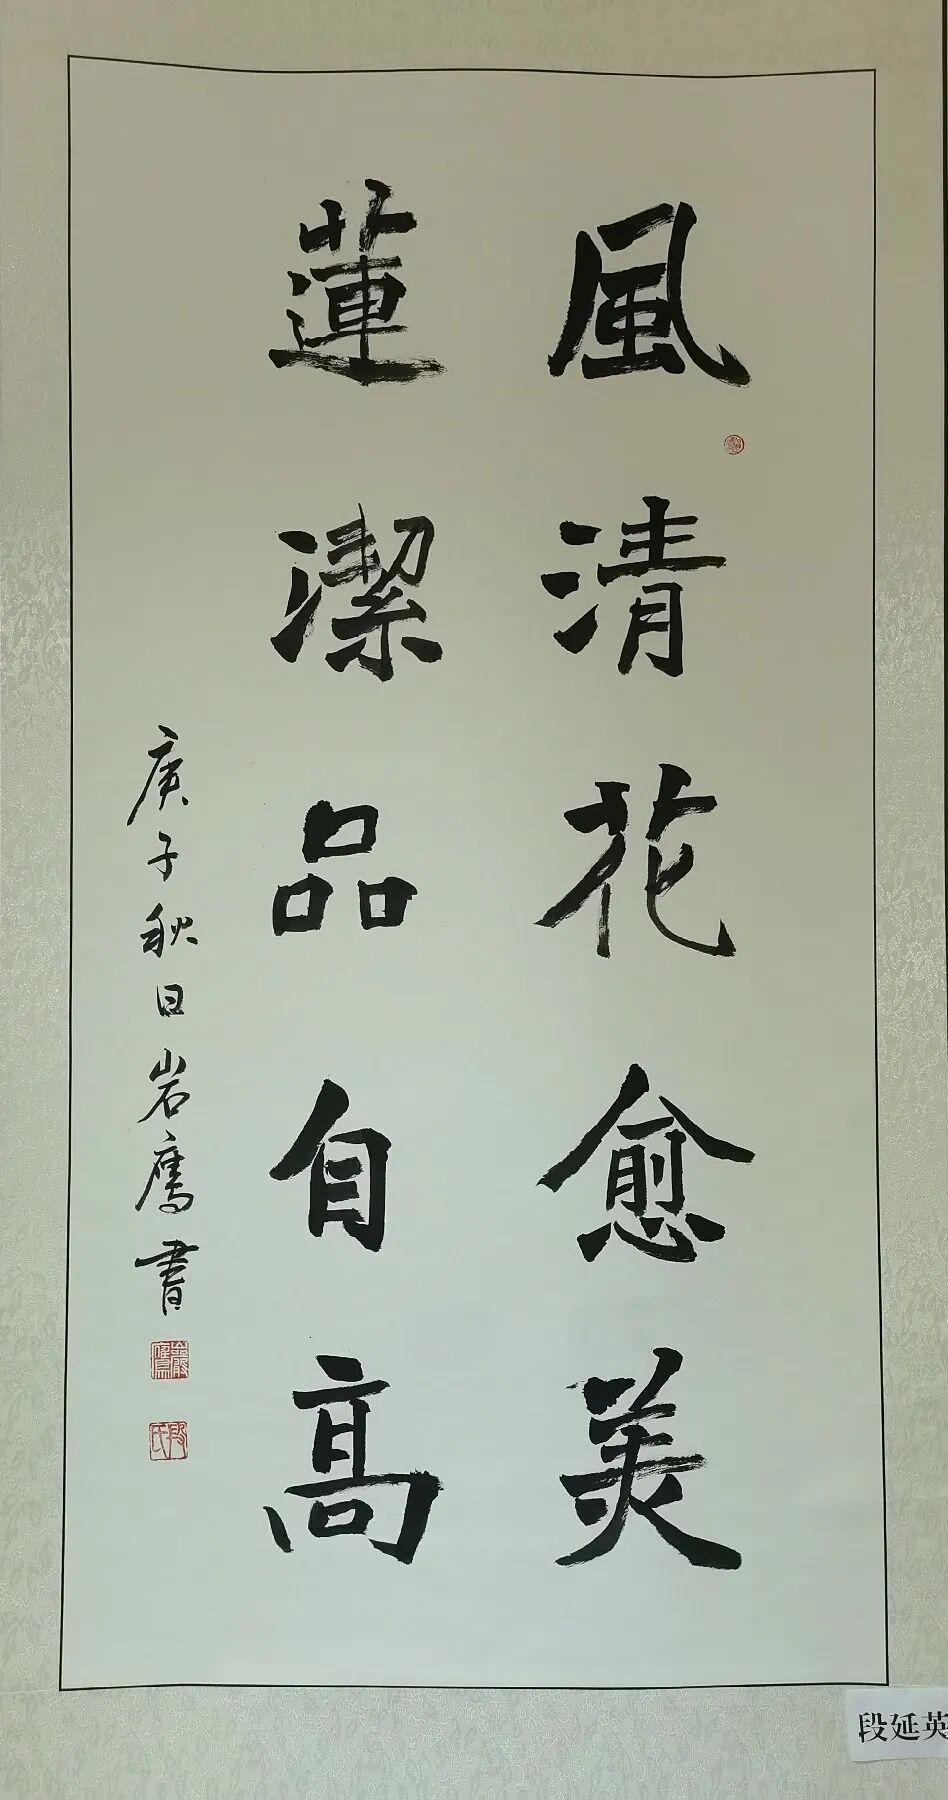 風清花愈美
蓮潔品自高
庚子秋日岩鷹書
段氏
段延英